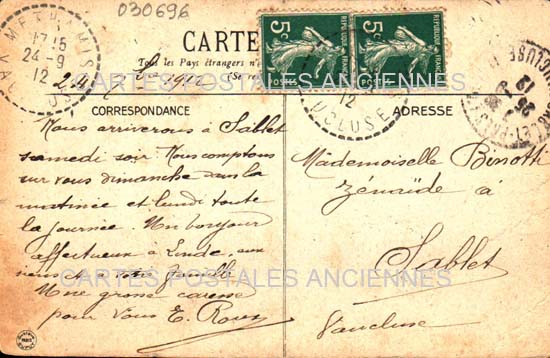 030696
CARTE
Tous les Pays étrangers n'
(Se re
CORRESPONDANCE
ADRESSE
17 15
24-9
12
5c
POSTES
REPUBLIQUE FRANÇAISE
5c
POSTES
REPUBLIQUE FRANÇAISE
12
VAUCLUSE
Nous arriverons à Sablet
samedi soir. Nous comptons
sur vous dimanche dans la
matinée et lundi toute
la journée. Un bonjour
affectueux à Linde, aux
et à votre famille
Une grosse caresse
pour vous E. Roux
Mademoiselle Benotti
Zénaïde a
Sablet
Vaucluse
CARTES POSTALES ANCIENNES
CARTES POSTALES ANCIENNES